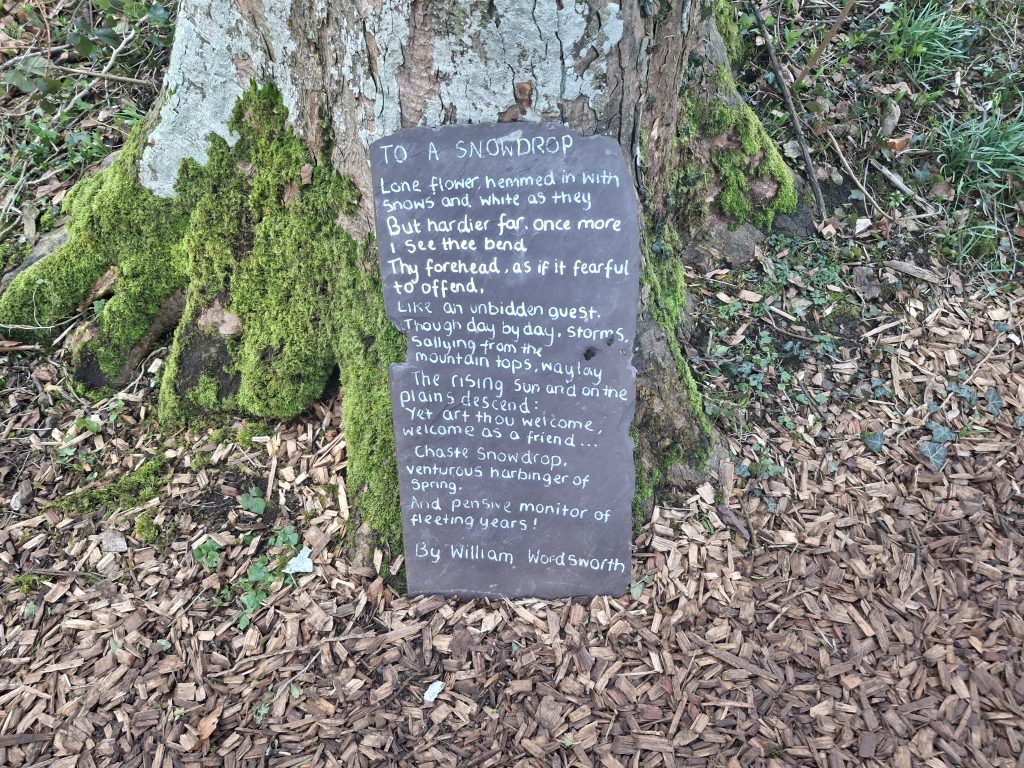 TO A SNOWDROP
Lone flower, hemmed in with
snows and white as they
But hardier far, once more
I see thee bend
Thy forehead, as if it fearful
to offend,
Like an unbidden guest.
Though day by day, storms,
sallying from the
mountain tops, waylay
The rising sun and on the
plains descend:
Yet art thou welcome,
welcome as a friend...
Chaste Snowdrop,
venturous harbinger of
Spring.
And pensive monitor of
fleeting years!
By William Wordsworth